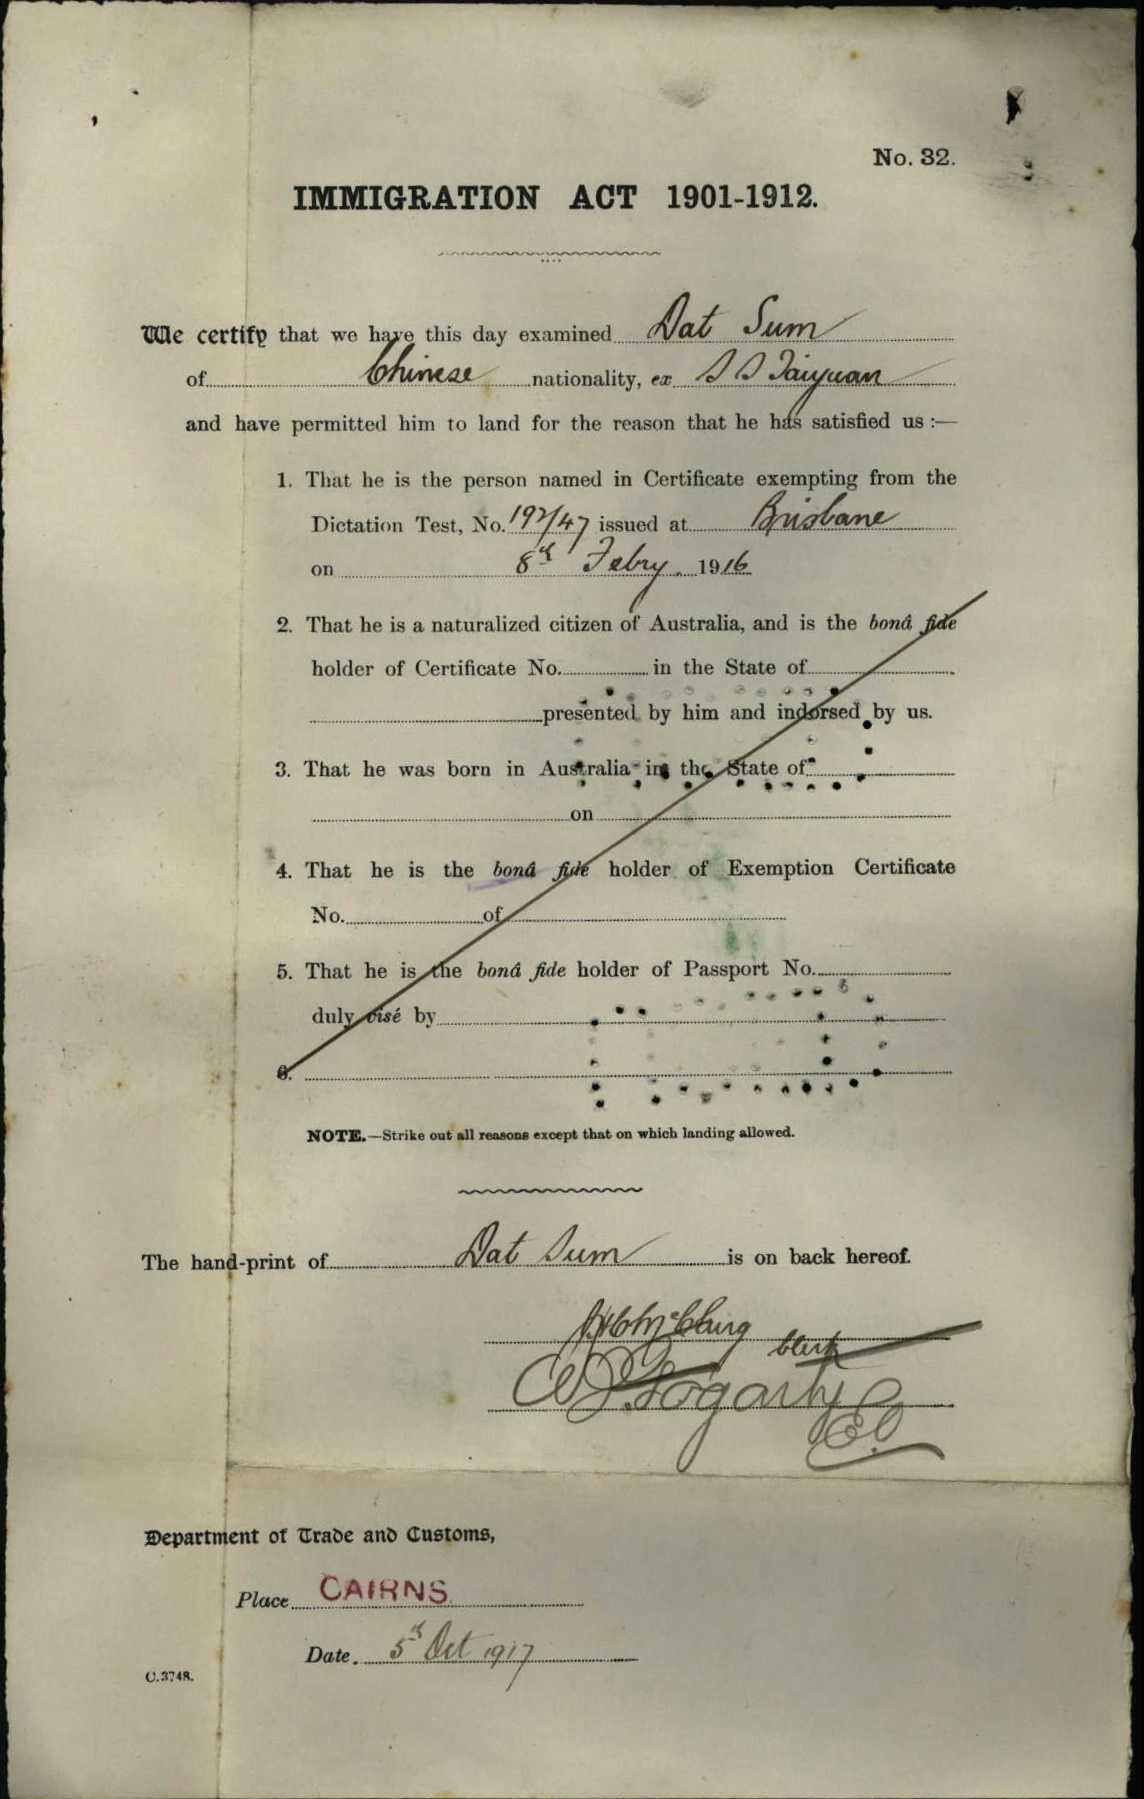 No. 32.
IMMIGRATION ACT 1901-1912.
We certify that we have this day examined Dat Sum
of Chinese nationality, ex S S Taiyuan
and have permitted him to land for the reason that he has satisfied us :—
1. That he is the person named in Certificate exempting from the
Dictation Test, No. 192/47 issued at Brisbane
on 8th Febry. 1916
2. That he is a naturalized citizen of Australia, and is the bonâ fide
holder of Certificate No. in the State of
presented by him and indorsed by us.
3. That he was born in Australia in the State of
on
4. That he is the bonâ fide holder of Exemption Certificate
No. of
5. That he is the bonâ fide holder of Passport No.
duly visé by
6.
NOTE.—Strike out all reasons except that on which landing allowed.
The hand-print of Dat Sum is on back hereof.
McClurg
Clerk
Fogarty
Department of Trade and Customs,
Place CAIRNS
Date. 5th Oct 1917
C.3748.